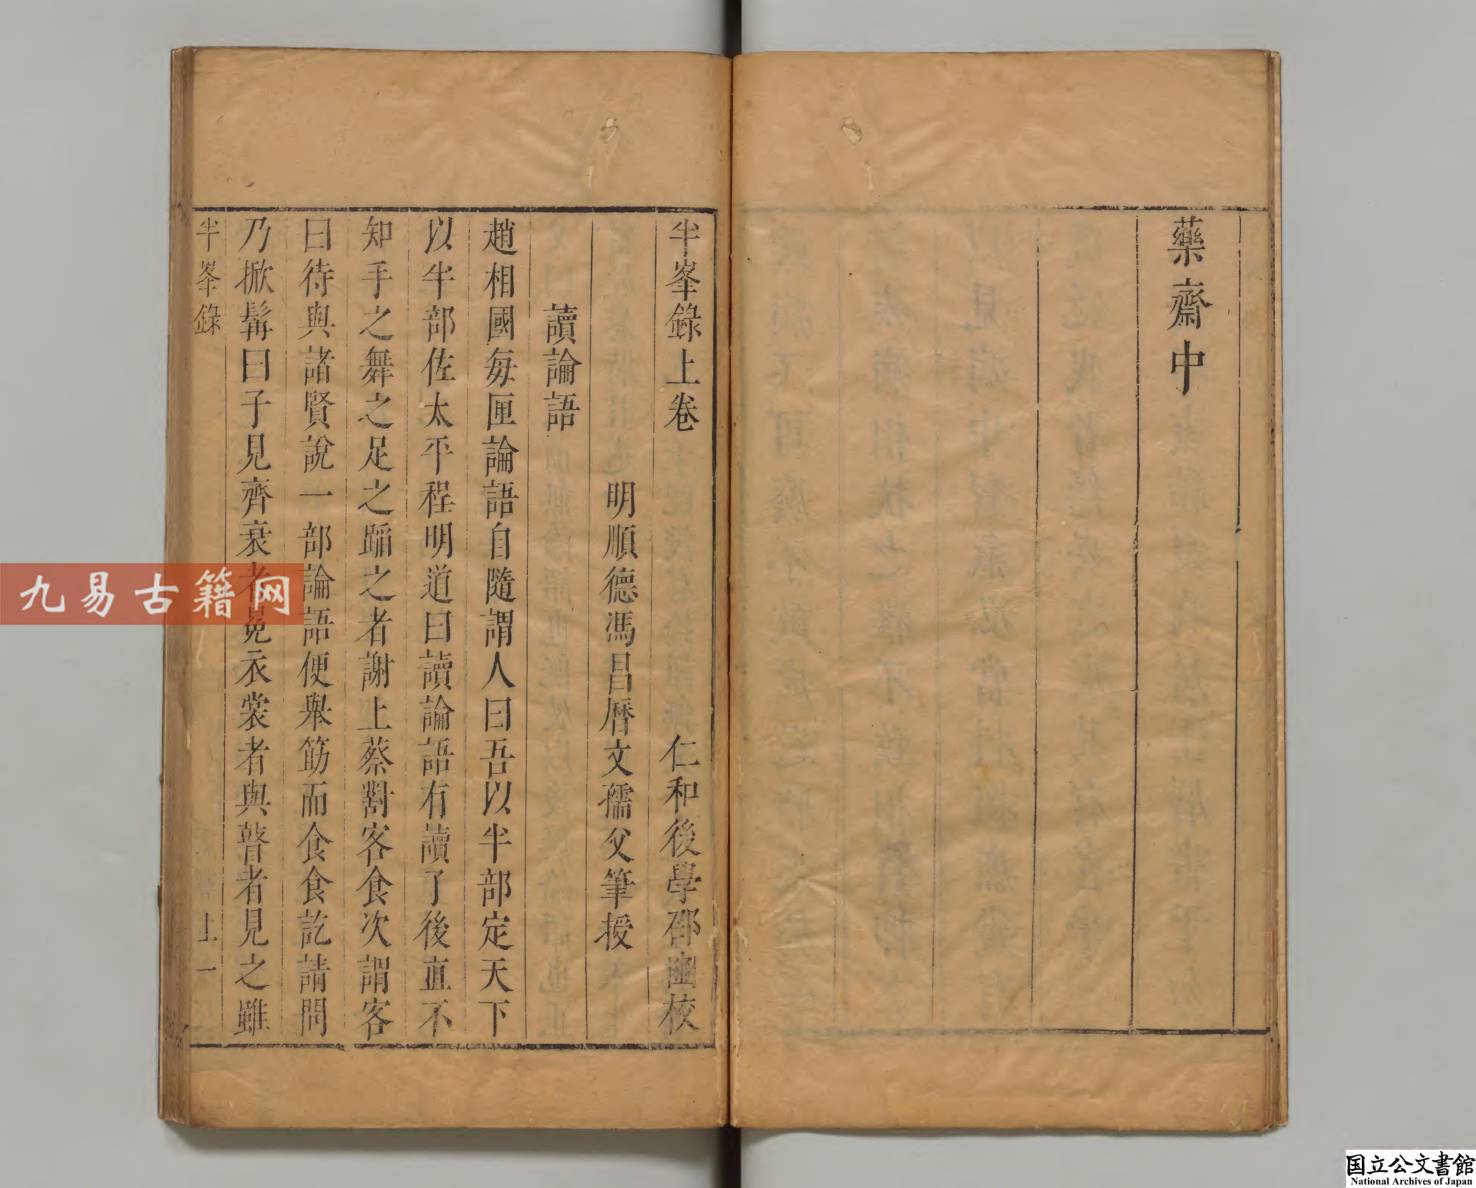 藥齋中
半峯錄上卷
仁和後學邵幽校
明順德馮昌曆文孺父筆授
讀論語
趙相國每匣論語自隨謂人曰吾以半部定天下
以半部佐太平程明道曰讀論語有讀了後直不
知手之舞之足之蹈之者謝上蔡對客食次謂客
曰待與諸賢說一部論語便舉筯而食食訖請問
乃掀髯曰子見齊衰者冕衣裳者與瞽者見之雖
半峯錄
上一
九易古籍网
国立公文書館
National Archives of Japan